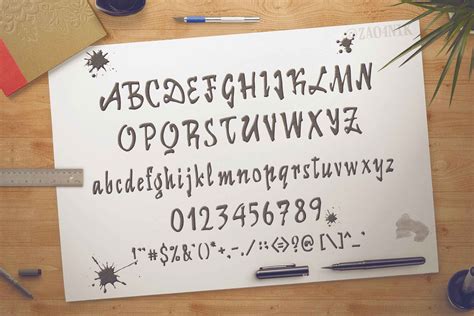 @ZAO4N1K
ABCDEFGHIJKLMN
OPQRSTUVWXYZ
abcdefghijklmnopqrstuvwxyz
0123456789
!"#$%&'()*+,-./:;<=>?@[\]^_`